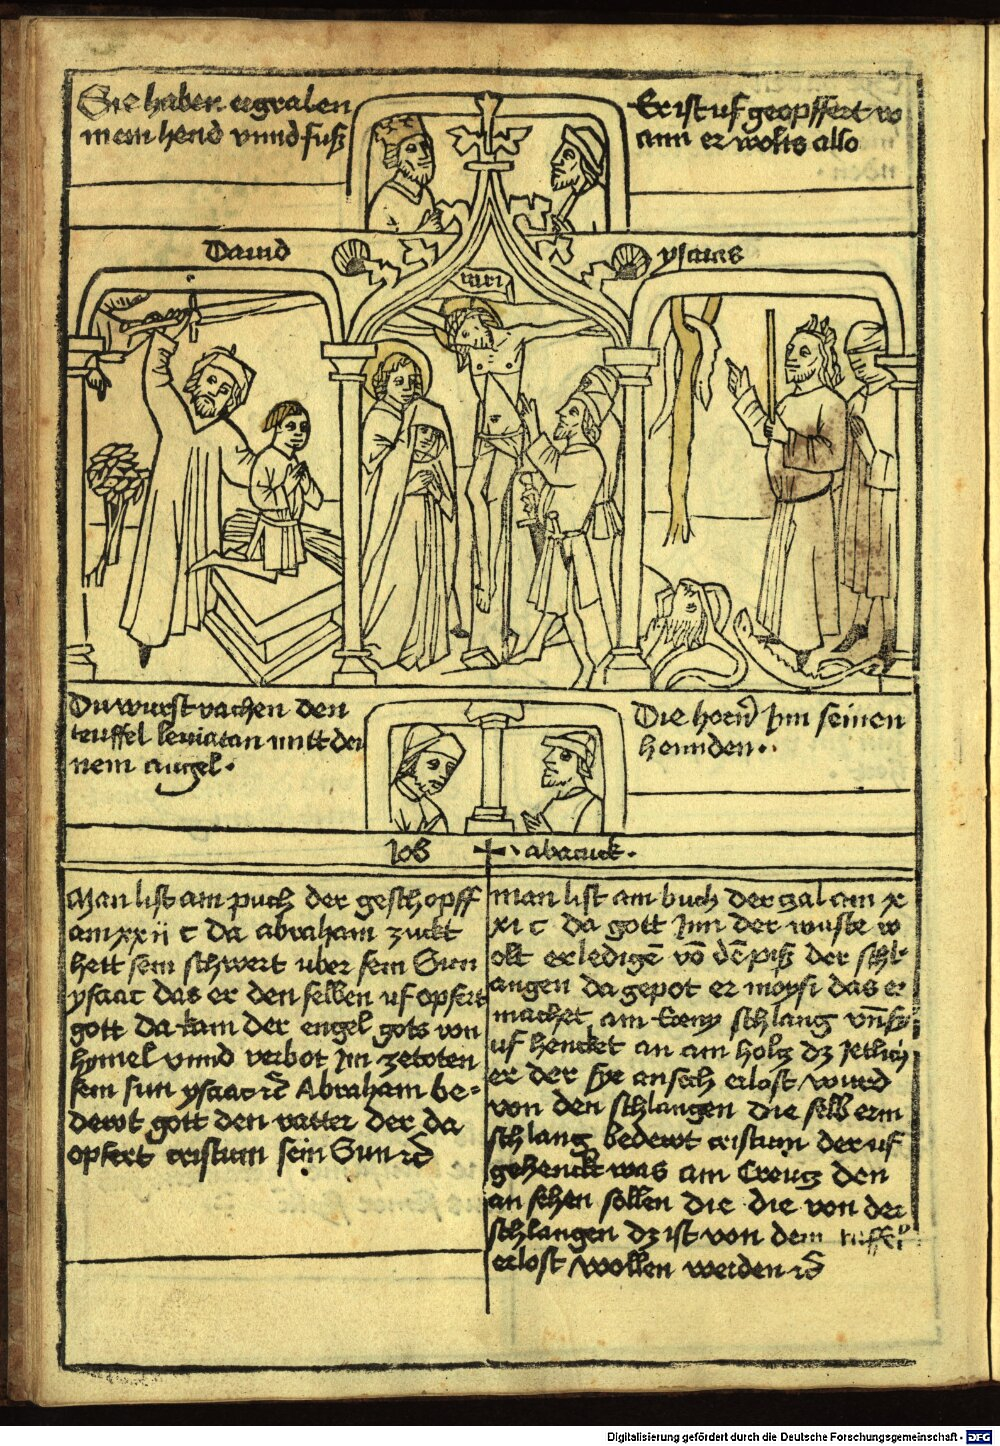 Sie haben ergraben
mein hend vnnd fuß
Er ist uf geopffert w
ann er wolts also
Dauid
ysaias
inri
Du wurst vachen den
teuffel leuiatan mitt dei
nem angel.
Die horn Jm seinen
hennden..
Job
abacuck.
Man list am puch der geschopff
am xxii c da abraham zuckt
hett sein schwert uber sein Sun
ysaac das er den selben uf opfert
gott da kam der engel gots von
hymel vnnd verbot Jm zetoten
sein sun ysaac rc Abraham be-
dewt gott den vatter der da
opfert cristum sein Sun rc
man list am buch der zal am x
xi c da gott Jnn der wuste w
olt erledigē vō dē piß der schl
angen da gepot er moysi das er
machet am Eriny schlang vn̄ sy
uf hencket an am holtz dz Jetlich
er der sye ansech erlost wurd
von den schlangen die selb erin
schlang bedewt cristum der uf
gehenckt was am Creutz den
an sehen sollen die die von der
schlangen dz ist von dem tuffel
erlost wollen werden rc
Digitalisierung gefördert durch die Deutsche Forschungsgemeinschaft - DFG